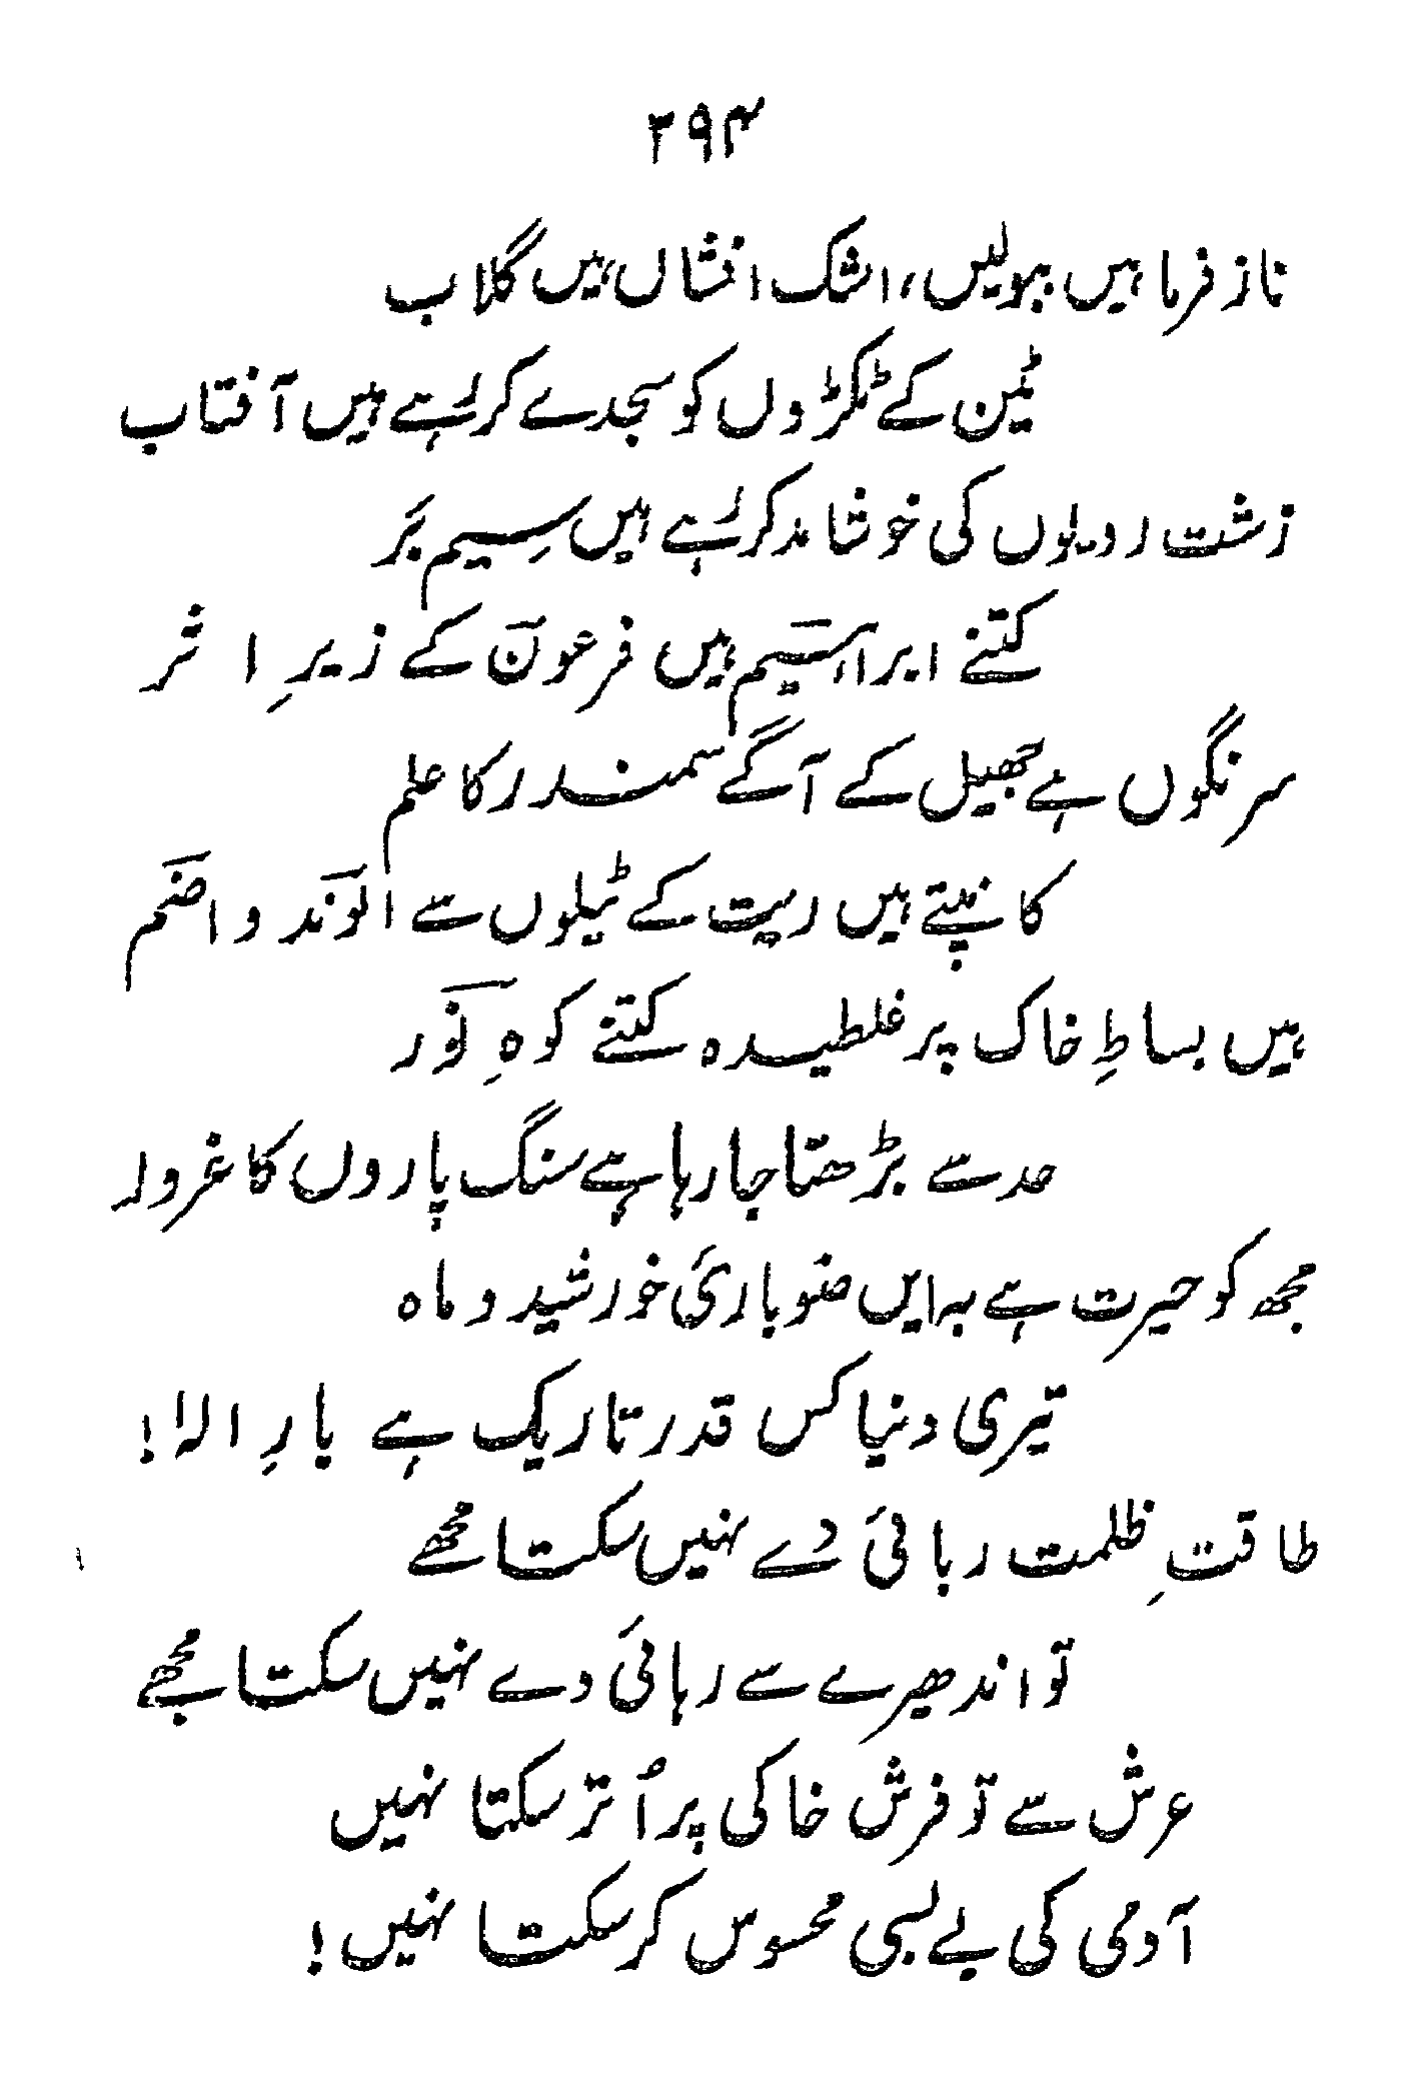 ۳۹۴
ناز فرما ہیں ببولیں، اشک افشاں ہیں گلاب
ٹین کے ٹکڑوں کو سجدے کر رہے ہیں آفتاب
زشت رویوں کی خوشامد کر رہے ہیں سِیم بَر
کتنے ابراہیم ہیں فرعون کے زیرِ اثر
سرنگوں ہے جھیل کے آگے سمندر کا علم
کانپتے ہیں ریت کے ٹیلوں سے الوند و اضم
ہیں بساطِ خاک پر غلطیدہ کتنے کوہِ نور
حد سے بڑھتا جا رہا ہے سنگ پاروں کا غرور
مجھ کو حیرت ہے بہ ایں ضو باریٔ خورشید و ماہ
تیری دنیا کس قدر تاریک ہے یارِ الہٰ!
طاقتِ ظلمت ربائی دے نہیں سکتا مجھے
تو اندھیرے سے رہائی دے نہیں سکتا مجھے
عرش سے تو فرش خاکی پر اُتر سکتا نہیں
آدمی کی بے بسی محسوس کر سکتا نہیں!